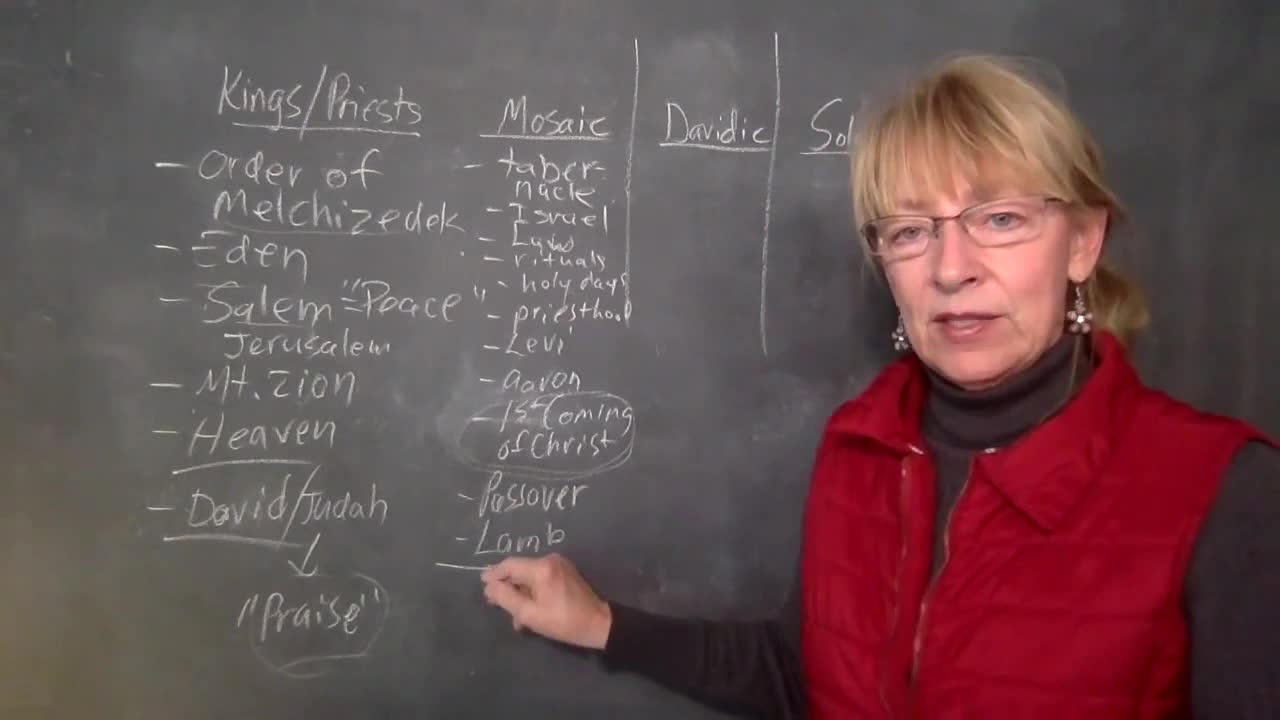 Kings/Priests
- Order of
Melchizedek
- Eden
- Salem = "Peace"
Jerusalem
- Mt. Zion
- Heaven
- David/Judah
↓
"Praise"
Mosaic
- taber-
nacle
- Israel
- Law
- rituals
- holy days
- priesthood
- Levi
- aaron
- 1st Coming
of Christ
- Passover
- Lamb
Davidic
Sol